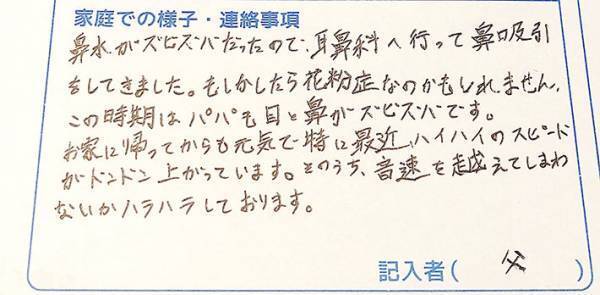 家庭での様子・連絡事項
鼻水がズビズバだったので、耳鼻科へ行って鼻吸引
をしてきました。もしかしたら花粉症なのかもしれません。
この時期はパパも目と鼻がズビズバです。
お家に帰ってからも元気で特に最近、ハイハイのスピード
がドンドン上がっています。そのうち、音速を越えてしまわ
ないかハラハラしております。
記入者( 父 )